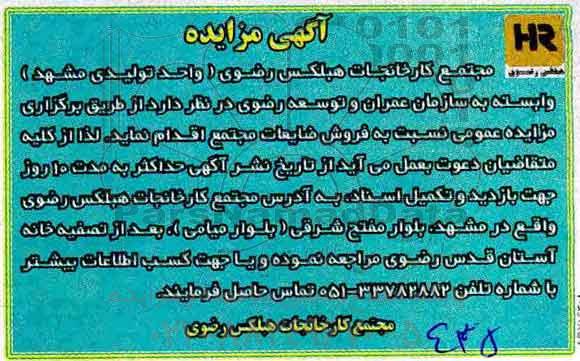 آگهی مزایده
HR
هبلکس رضوی
مجتمع کارخانجات هبلکس رضوی ( واحد تولیدی مشهد )
وابسته به سازمان عمران و توسعه رضوی در نظر دارد از طریق برگزاری
مزایده عمومی نسبت به فروش ضایعات مجتمع اقدام نماید. لذا از کلیه
متقاضیان دعوت بعمل می آید از تاریخ نشر آگهی حداکثر به مدت ۱۰ روز
جهت بازدید و تکمیل اسناد، به آدرس مجتمع کارخانجات هبلکس رضوی
واقع در مشهد، بلوار مفتح شرقی ( بلوار میامی )، بعد از تصفیه خانه
آستان قدس رضوی مراجعه نموده و یا جهت کسب اطلاعات بیشتر
با شماره تلفن ۳۳۷۸۲۸۸۲-۰۵۱ تماس حاصل فرمایند.
مجتمع کارخانجات هبلکس رضوی